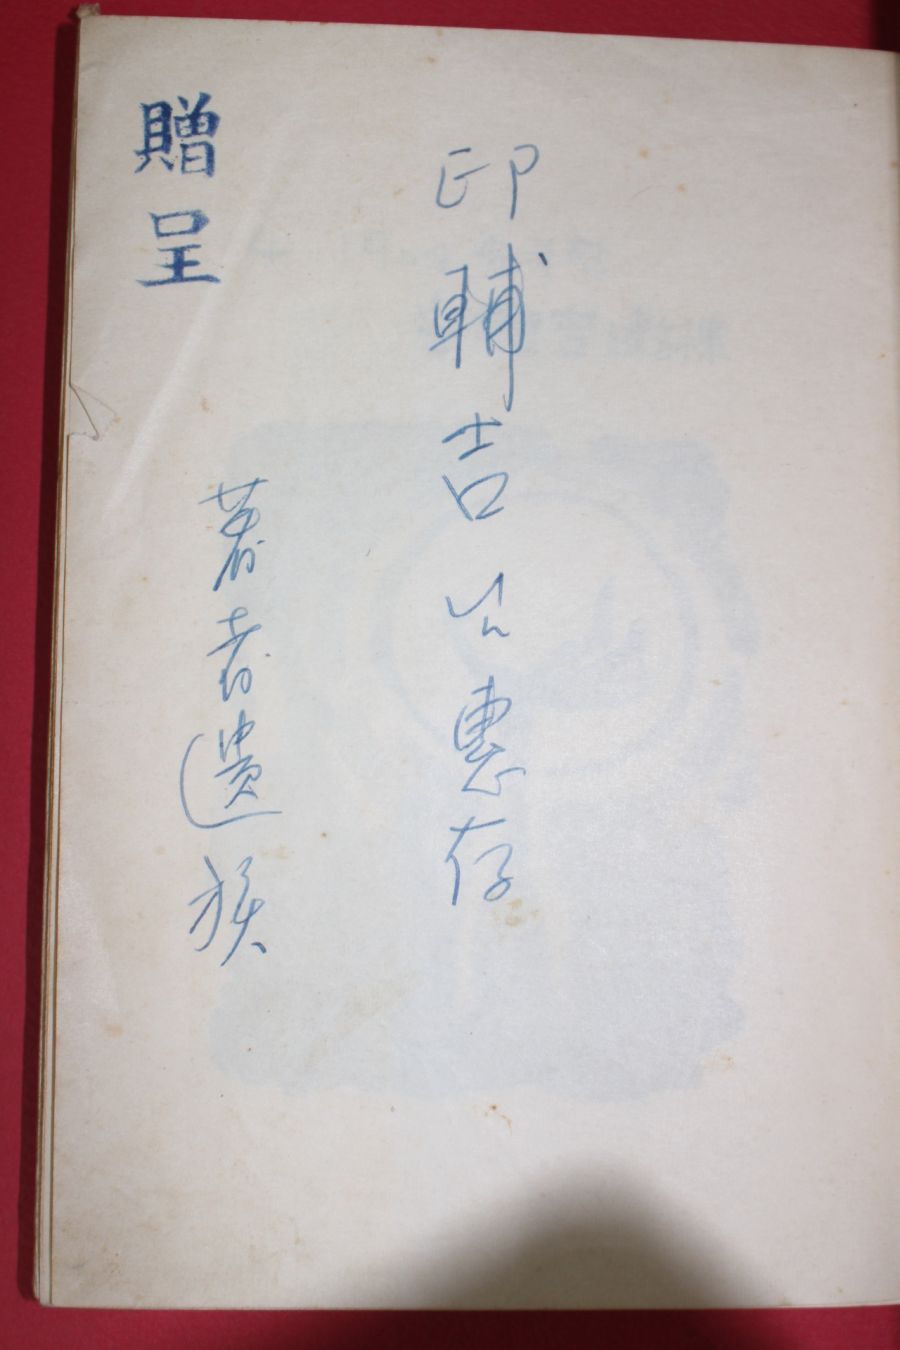 印輔吉公惠存
贈呈
著者遺族